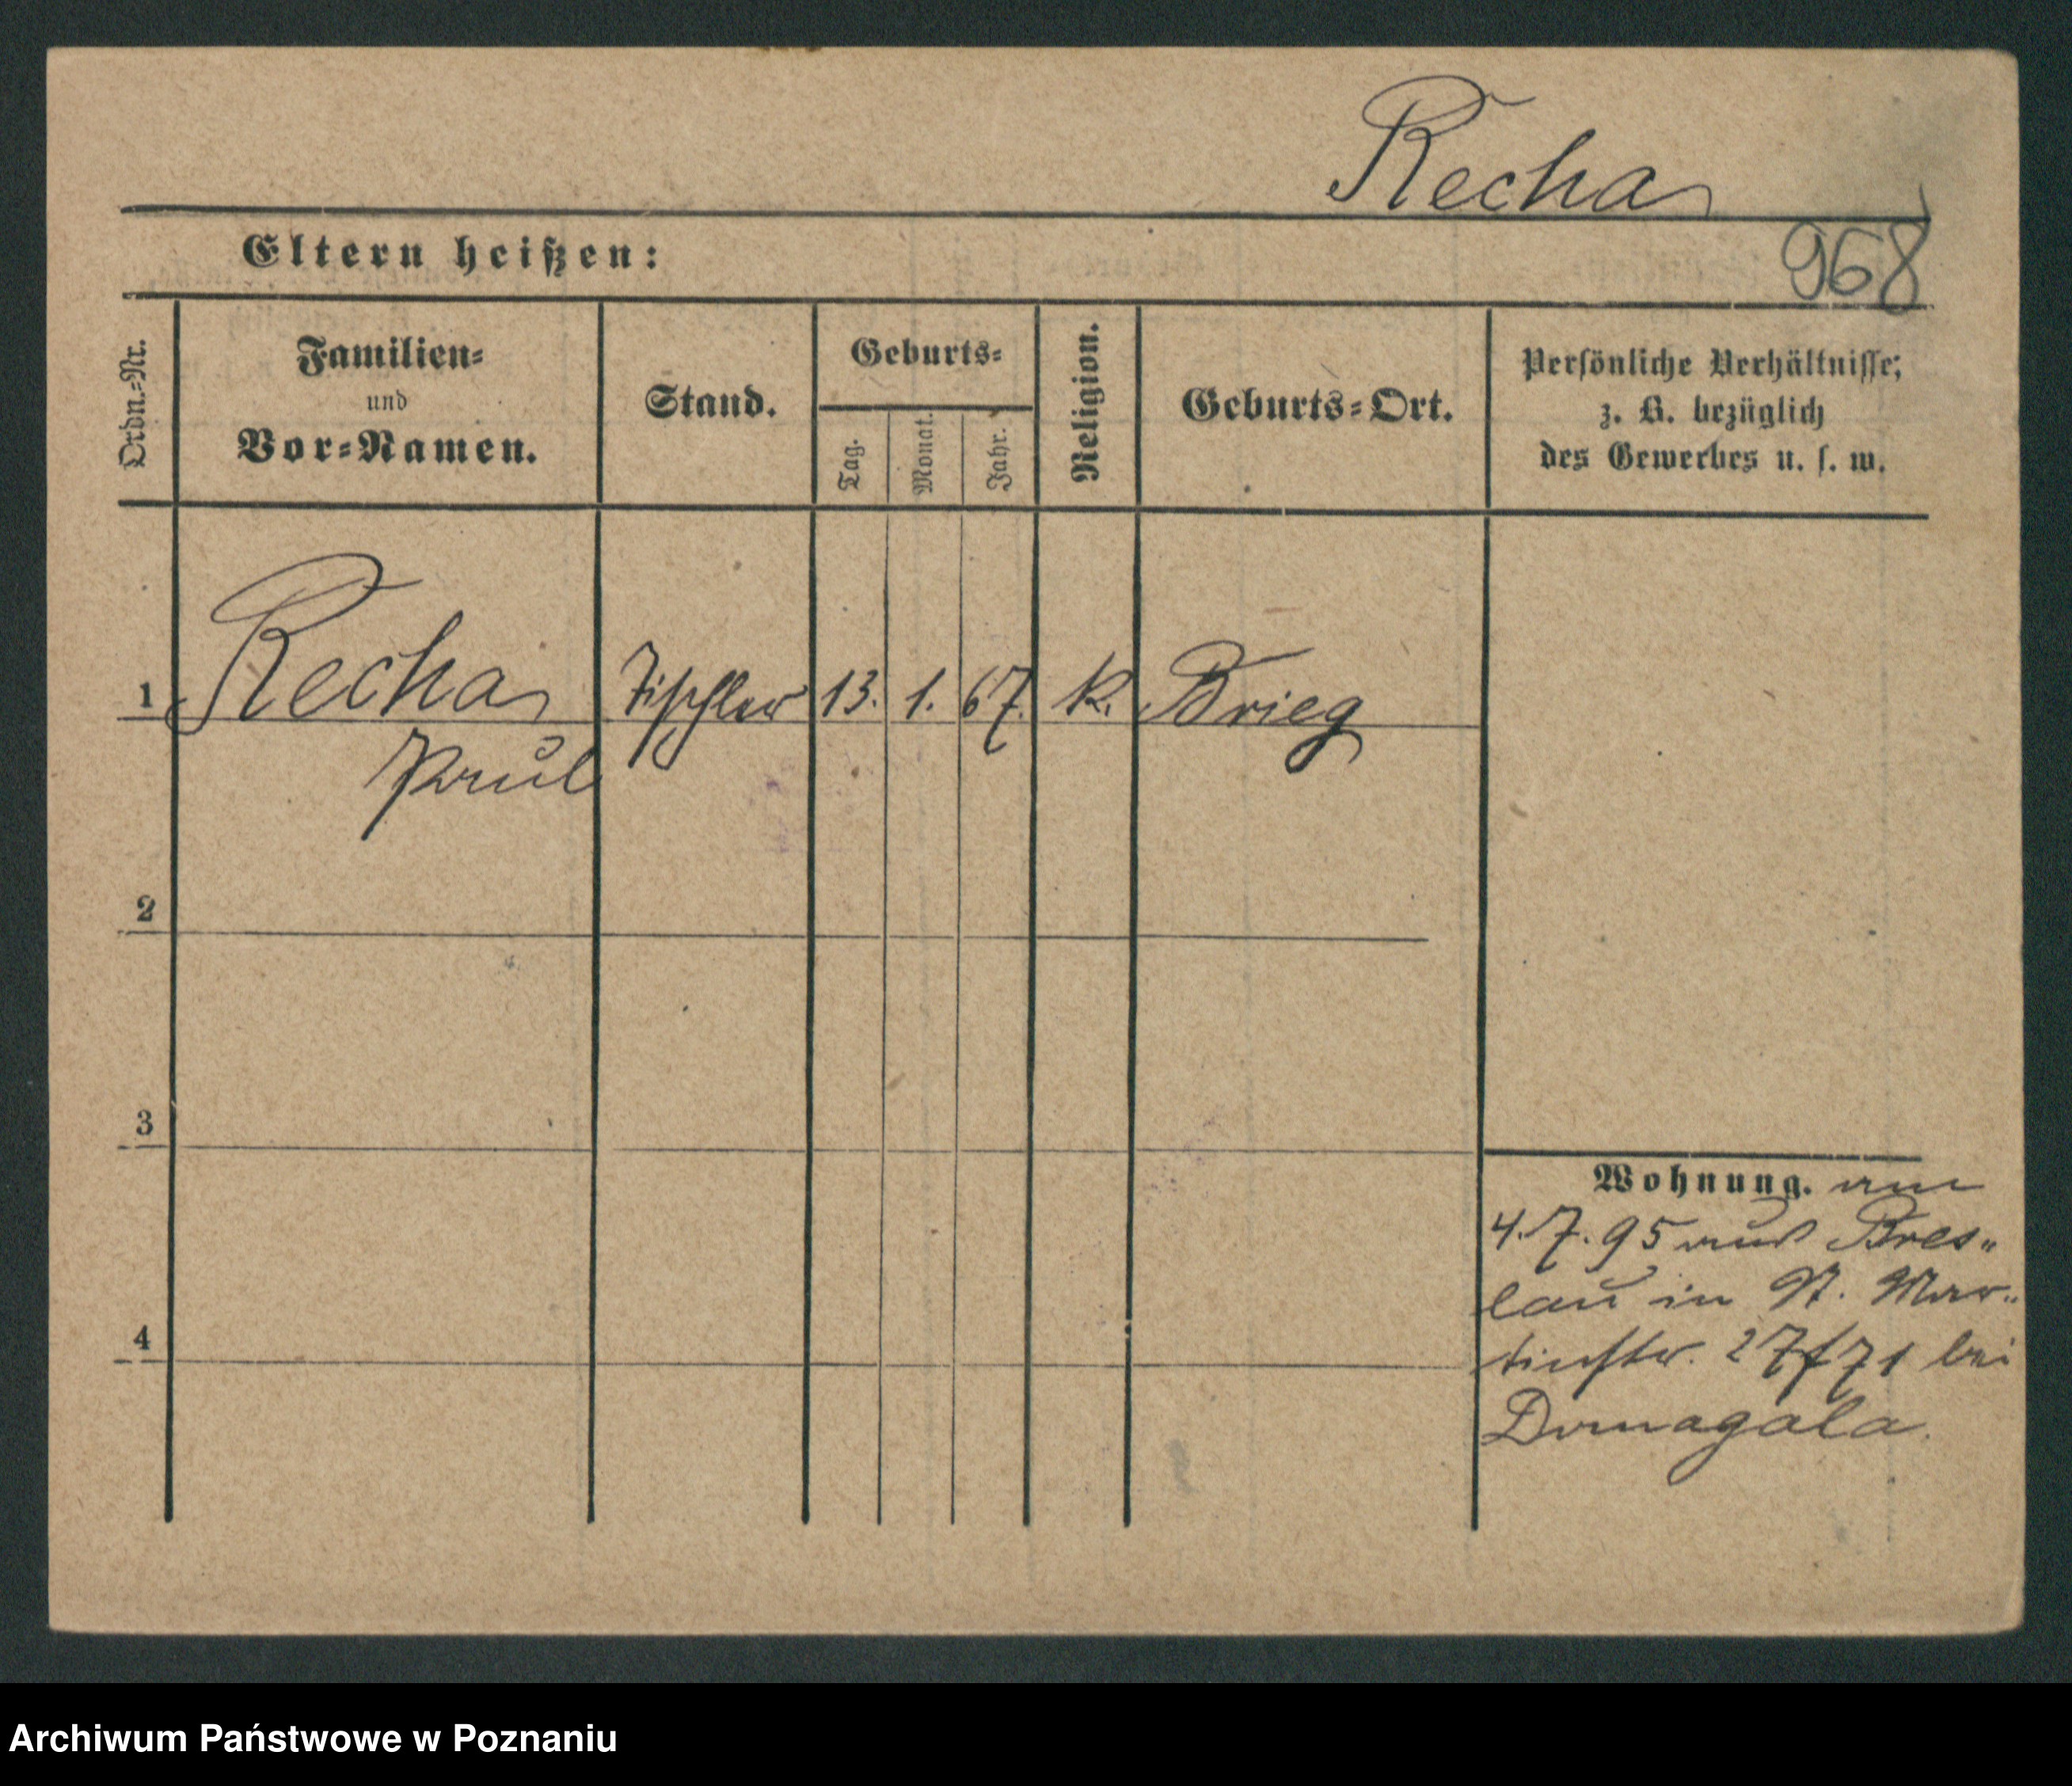 Recha
968
Eltern heißen:
Ordn.=Nr.
Familien=
und
Vor=Namen.
Stand.
Geburts=
Tag.
Monat.
Jahr.
Religion.
Geburts=Ort.
Persönliche Verhältnisse;
z. B. bezüglich
des Gewerbes u. s. w.
1 Recha Tischler 13. 1. 67. K. Brieg
Paul
2
3
4
Wohnung. am
4.7.95 aus Bres„
lau in St. Mar„
tinstr. 27 bei
Domagala.
Archiwum Państwowe w Poznaniu